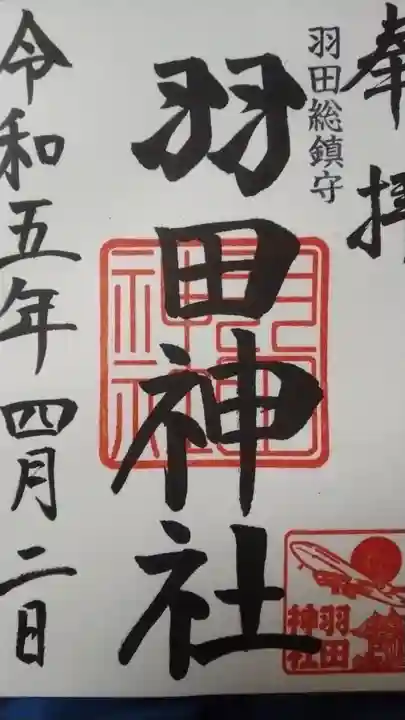 奉拝
羽田総鎮守
羽田神社
羽田神社
令和五年四月二日
羽田
神社